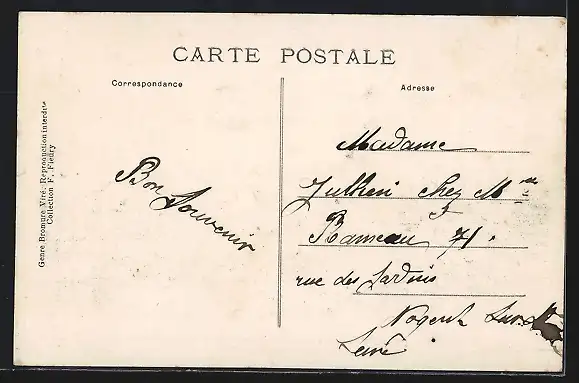 CARTE POSTALE
Correspondance
Adresse
Genre Bromure Viré. Reproduction interdite
Collection F. Fleury
Bon
Souvenir
Madame
chez Mme
Rameau 71.
rue des Jardins
Nogent sur